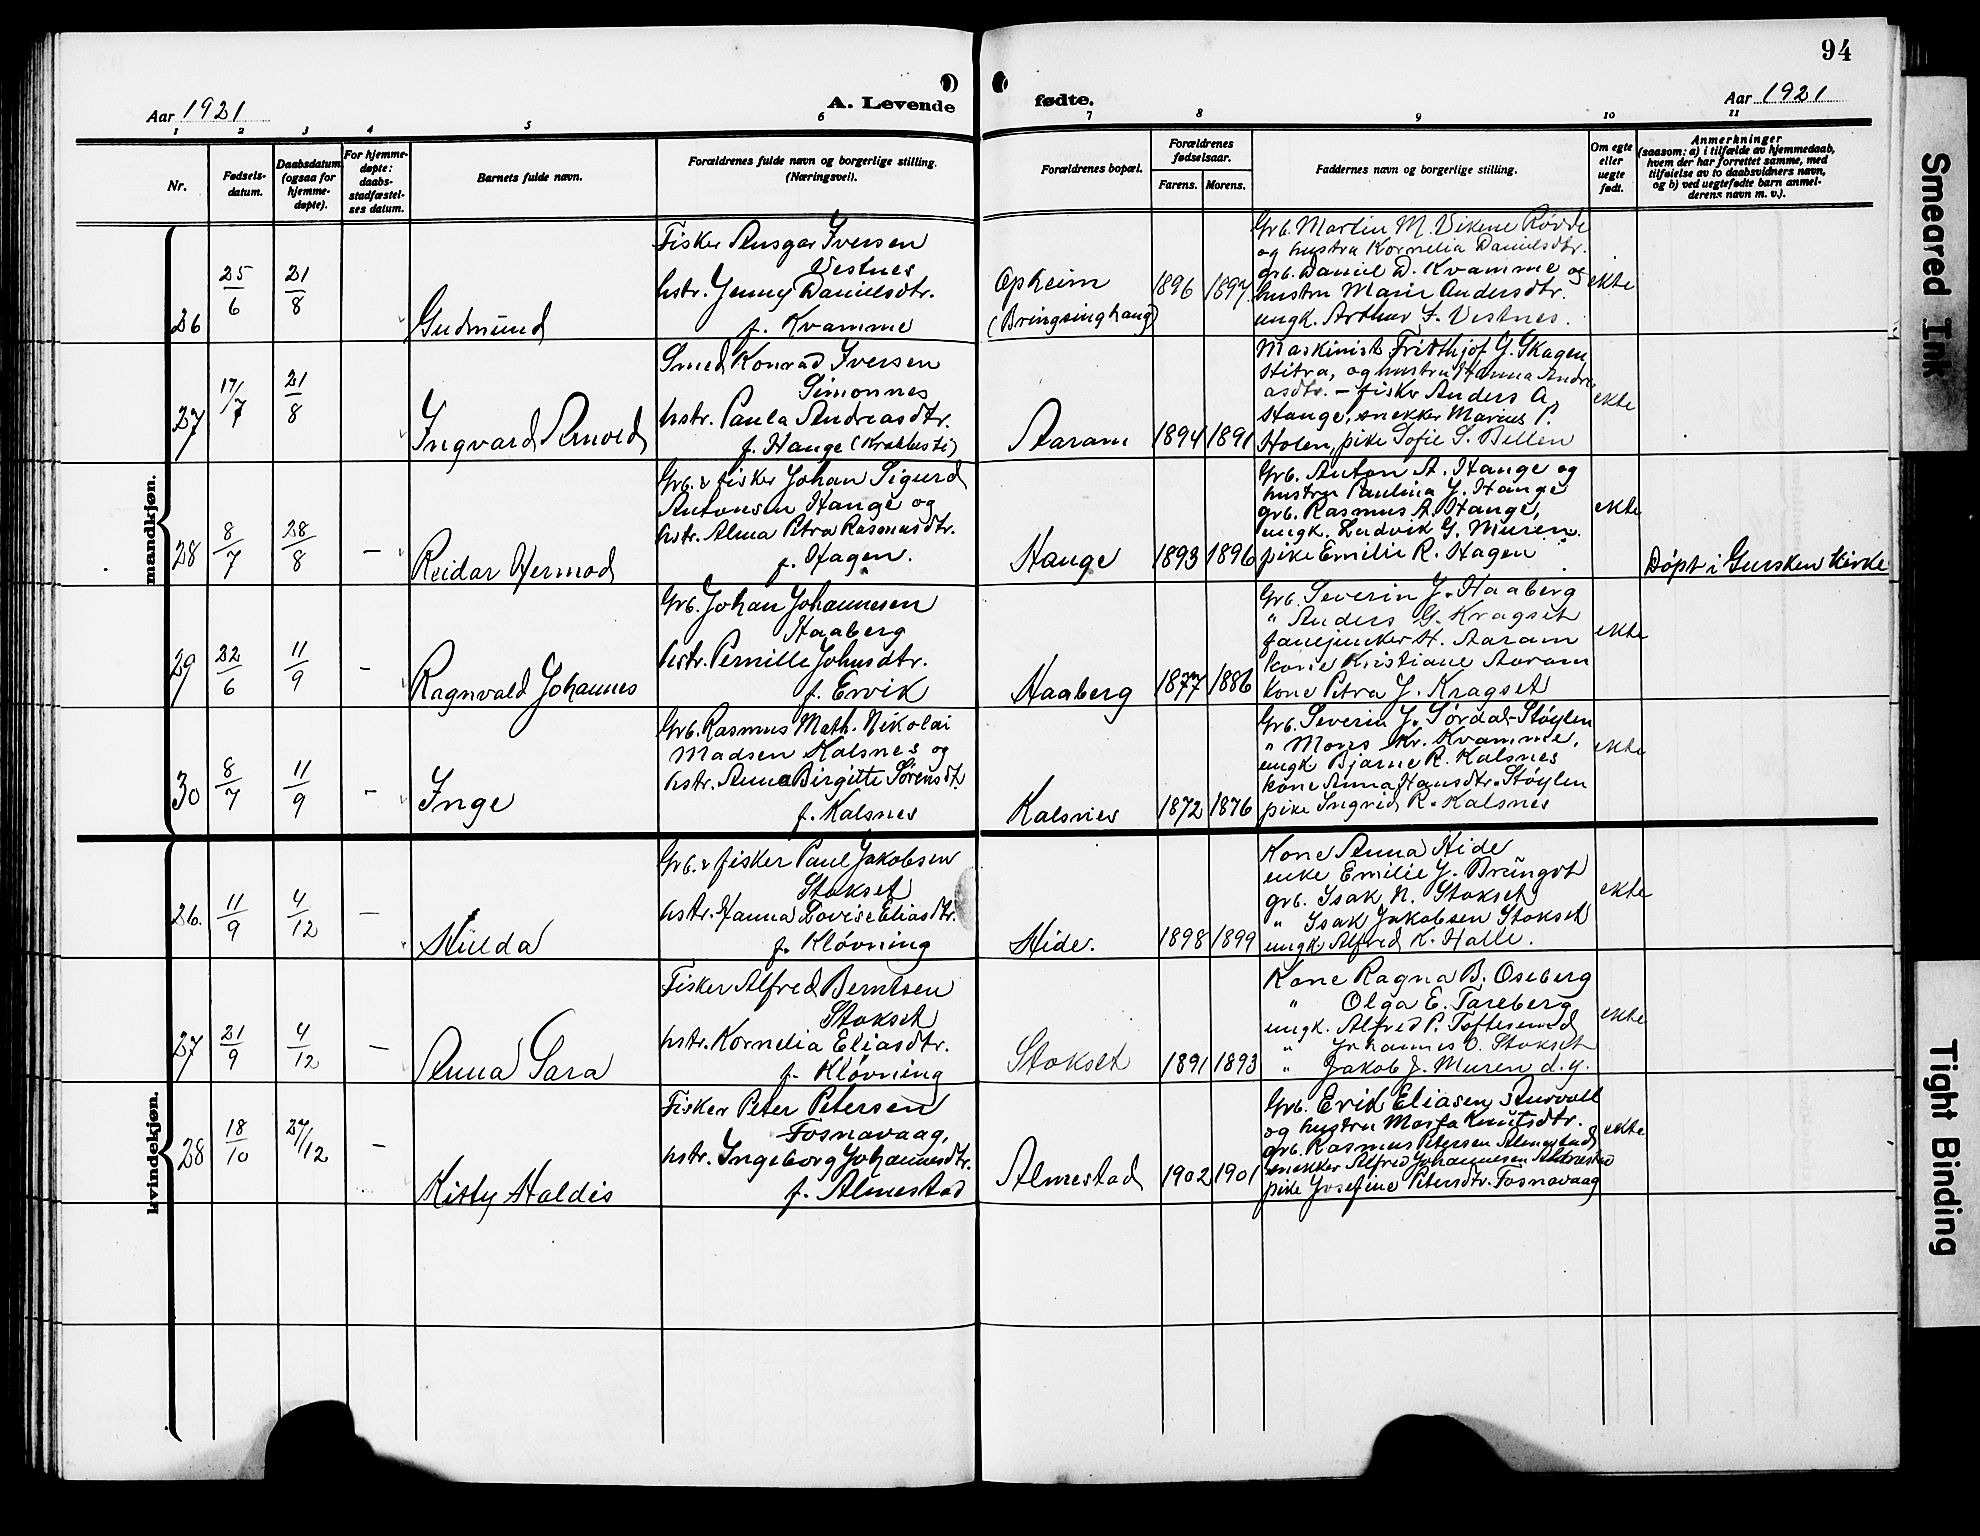 94
Aar 1921
A. Levende
fødte.
Aar 1921
1 2 3 4 5 6 7 8 9 10 11
Nr.
Fødsels-
datum.
Daabsdatum
(ogsaa for
hjemme-
døpte).
For hjemme-
døpte:
daabs-
stadfæstel-
ses datum.
Barnets fulde navn.
Forældrenes fulde navn og borgerlige stilling.
(Næringsvei).
Forældrenes bopæl.
Forældrenes
fødselsaar.
Farens. Morens.
Faddernes navn og borgerlige stilling.
Om egte
eller
uegte
født.
Anmerkninger
(saasom: a) i tilfælde av hjemmedaab,
hvem der har forrettet samme, med
tilføielse av to daabsvidners navn,
og b) ved uegtefødte barn anmel-
derens navn m. v.).
mandkjøn.
26
25/6
21/8
Gudmund
Fisker Ansgar Iversen
Vestnes
hstr. Jenny Danielsdtr.
f. Kvamme
Opheim
(Bringsinghaug)
1896 1897
Grb. Martin M. Vikene Røvde
og hustru Kornelia Danielsdtr.
grb. Daniel D. Kvamme og
hustru Marie Andersdtr.
ungk. Arthur I. Vestnes.
ekte
27
17/7
21/8
Ingvard Arnold
Smed Konrad Iversen
Simonnes
hstr. Paula Andreasdtr.
f. Hauge (Krakkesti)
Aaram
1894 1891
Maskinist Fridthjof G. Skagen
Stitra, og hustru Hanna Andre
asdtr. – fisker Anders A.
Hauge, snekker Marius P.
Holen, pike Sofie S. Bellen
ekte
28
8/7
28/8
–
Reidar Hermod
Grb. & fisker Johan Sigurd
Antonsen Hauge og
hstr. Alma Petra Rasmusdtr.
f. Hagen.
Hauge
1893 1896
Grb. Anton A. Hauge og
hustru Paulina J. Hauge
grb. Rasmus A. Hauge,
ungk. Ludvik G. Muren.
pike Emilie R. Hagen
ekte
Døpt i Gursken kirke
29
22/6
11/9
–
Ragnvald Johannes
Grb. Johan Johannesen
Haaberg
hstr. Pernille Johnsdtr.
f. Ervik
Haaberg
1877 1886
Grb. Severin J. Haaberg
" Anders G. Kragset
fanejunker H. Aaram
kone Kristiane Aaram
kone Petra J. Kragset
ekte
30
8/7
11/9
–
Inge
Grb. Rasmus Math. Nikolai
Madsen Kalsnes og
hstr. Anne Birgitte Sørensdt.
f. Kalsnes
Kalsnes
1872 1876
Grb. Severin J. Sørdal-Støylen
" Mons Kr. Kvamme.
ungk Bjarne R. Kalsnes
kone Anna Hansdtr. Støylen
pike Ingrid R. Kalsnes
ekte
kvindekjøn.
26.
11/9
4/12
–
Hulda
Grb. & fisker Paul Jakobsen
Stokset
hstr. Hanna Lovise Eliasdtr.
f. Kløvning
Hide.
1898 1899
Kone Anna Hide
enke Emilie J. Brungot
grb. Isak N. Stokset
" Isak Jakobsen Stokset
ungk Alfred K. Halle.
ekte
27
21/9
4/12
–
Anna Sara
Fisker Alfred Berntsen
Stokset
hstr. Kornelia Eliasdtr.
f. Kløvning
Stokset
1891 1893
Kone Ragna B. Oseberg
" Olga E. Tareberg
ungk. Alfred P.
" Johannes O. Stokset
" Jakob J. Muren d.y.
ekte
28
18/10
27/12
–
Kitty Haldis
Fisker Peter Petersen
Fosnavaag,
hstr. Ingeborg Johannesdtr.
f. Almestad
Almestad
1902 1901
Grb. Erik Eliasen
og hustru Marta Knutsdtr.
grb. Rasmus Petersen Almestad
snekker Alfred Johannesen Almestad
pike Josefine Petersdtr. Fosnavaag
ekte
Smeared Ink
Tight Binding